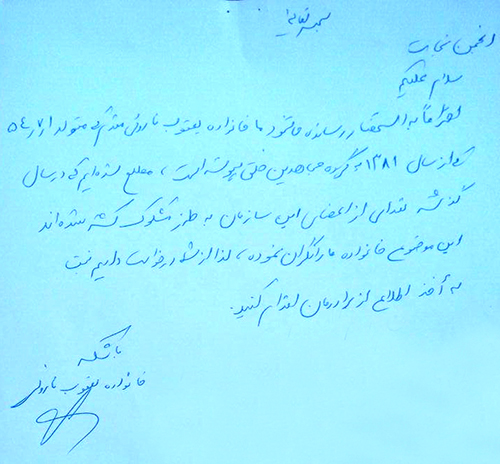 بسمه تعالی
انجمن نجات
سلام علیکم
احتراماً به استحضار رسانده میشود ما خانواده یعقوب ناروئی متولد
که از سال ۱۳۸۱ به گروه مجاهدین خلق پیوسته است، مطلع شده‌ایم که در سال
گذشته تعدادی از اعضای این سازمان به طرز مشکوک کشته شده‌اند
این موضوع خانواده ما را نگران نموده، لذا از شما درخواست داریم نسبت
به أخذ اطلاع از برادرمان اقدام کنید.
با تشکر
خانواده یعقوب ناروئی